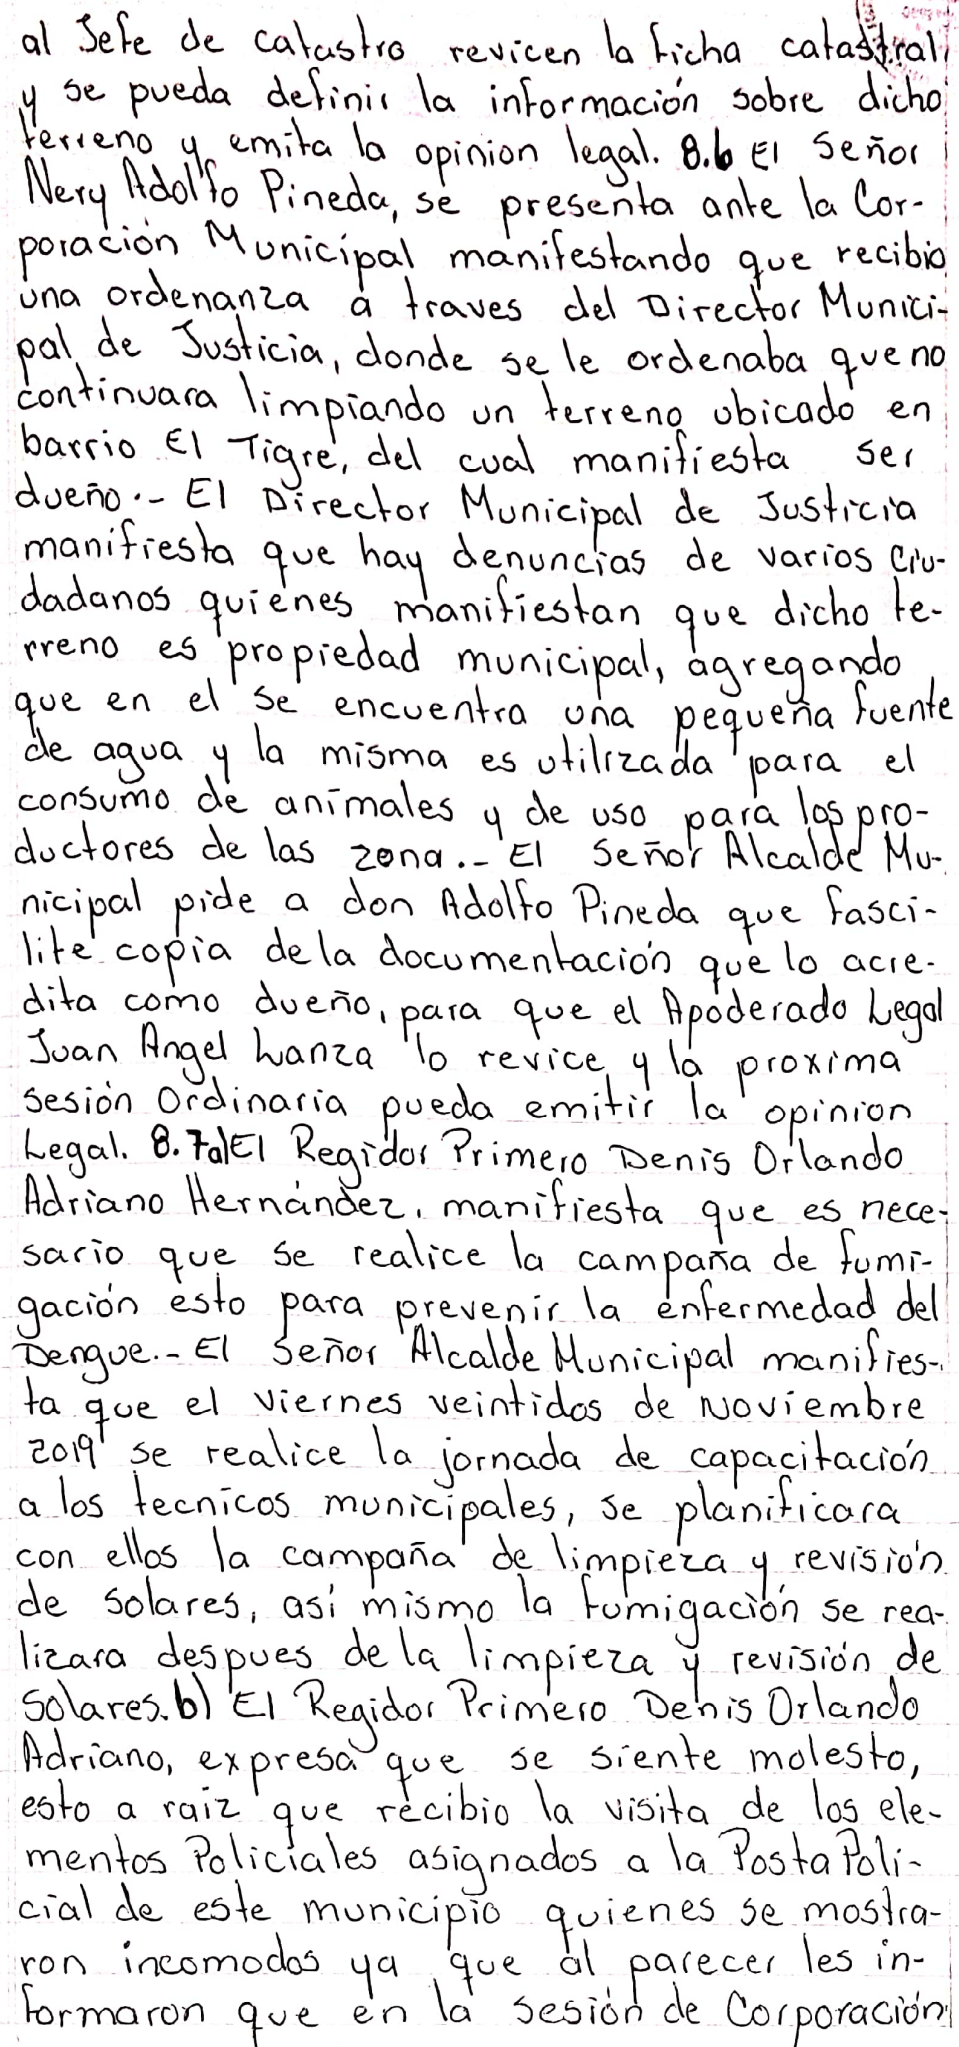 al Jefe de catastro revicen la ficha catastral
y se pueda definir la información sobre dicho
terreno y emita la opinion legal. 8.6 El Señor
Nery Adolfo Pineda, se presenta ante la Cor-
poración Municipal manifestando que recibio
una ordenanza a traves del Director Munici-
pal de Justicia, donde se le ordenaba que no
continuara limpiando un terreno ubicado en
barrio El Tigre, del cual manifiesta ser
dueño.- El Director Municipal de Justicia
manifiesta que hay denuncias de varios Ciu-
dadanos quienes manifiestan que dicho te-
rreno es propiedad municipal, agregando
que en el se encuentra una pequeña fuente
de agua y la misma es utilizada para el
consumo de animales y de uso para los pro-
ductores de las zona.- El Señor Alcalde Mu-
nicipal pide a don Adolfo Pineda que fasci-
lite copia de la documentación que lo acre-
dita como dueño, para que el Apoderado Legal
Juan Angel Lanza lo revice y la proxima
sesión Ordinaria pueda emitir la opinion
Legal. 8.7a) El Regidor Primero Denis Orlando
Adriano Hernández, manifiesta que es nece-
sario que se realice la campaña de fumi-
gación esto para prevenir la enfermedad del
Dengue.- El Señor Alcalde Municipal manifies-
ta que el viernes veintidos de Noviembre
2019 se realice la jornada de capacitación
a los tecnicos municipales, se planificara
con ellos la campaña de limpieza y revisión
de solares, así mismo la fumigación se rea-
lizara despues de la limpieza y revisión de
Solares. b) El Regidor Primero Denis Orlando
Adriano, expresa que se siente molesto,
esto a raiz que recibio la visita de los ele-
mentos Policiales asignados a la Posta Poli-
cial de este municipio quienes se mostra-
ron incomodos ya que al parecer les in-
formaron que en la sesión de Corporación